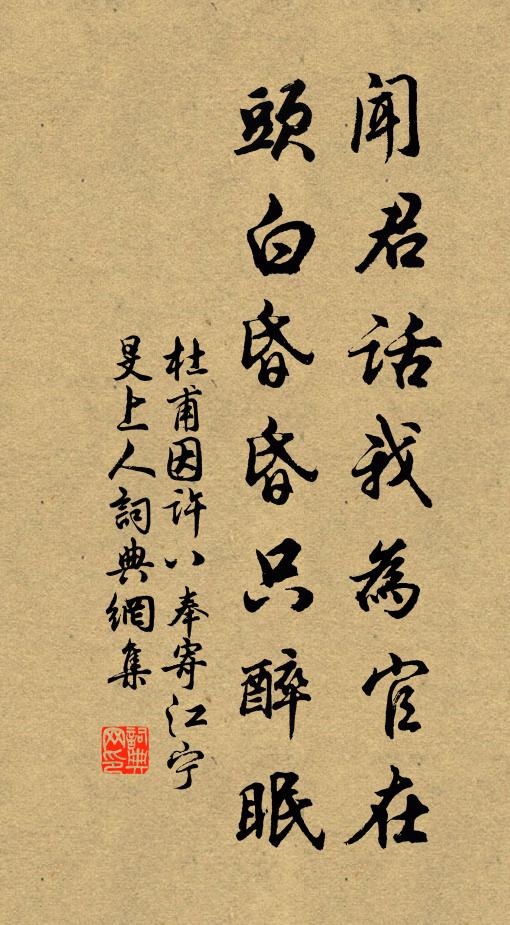 聞君話我為官在
頭白昏昏只醉眠
杜甫因許八奉寄江宁
旻上人詞典網集
詞典网印